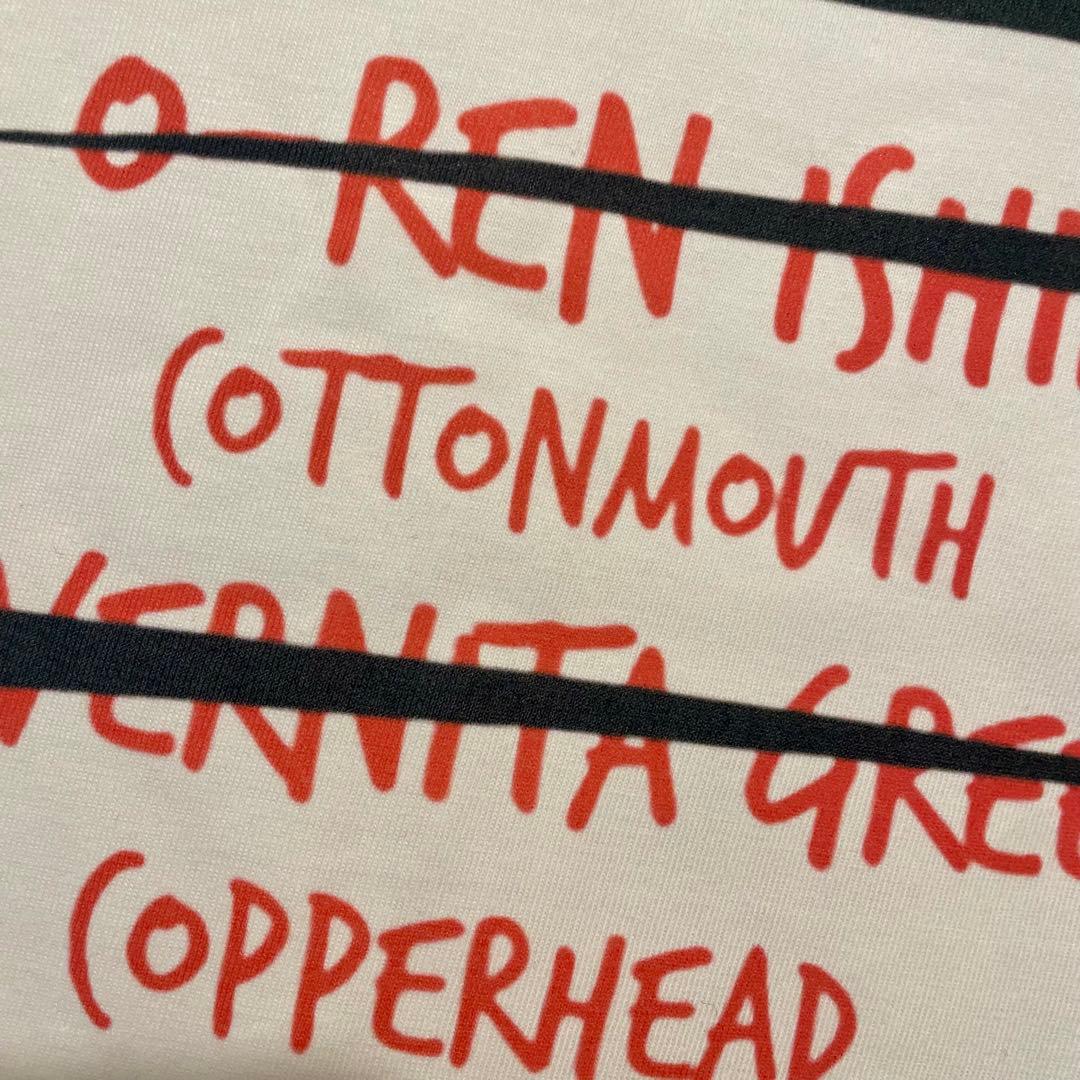 O-REN ISHI
COTTONMOUTH
VERNITA GREE
COPPERHEAD